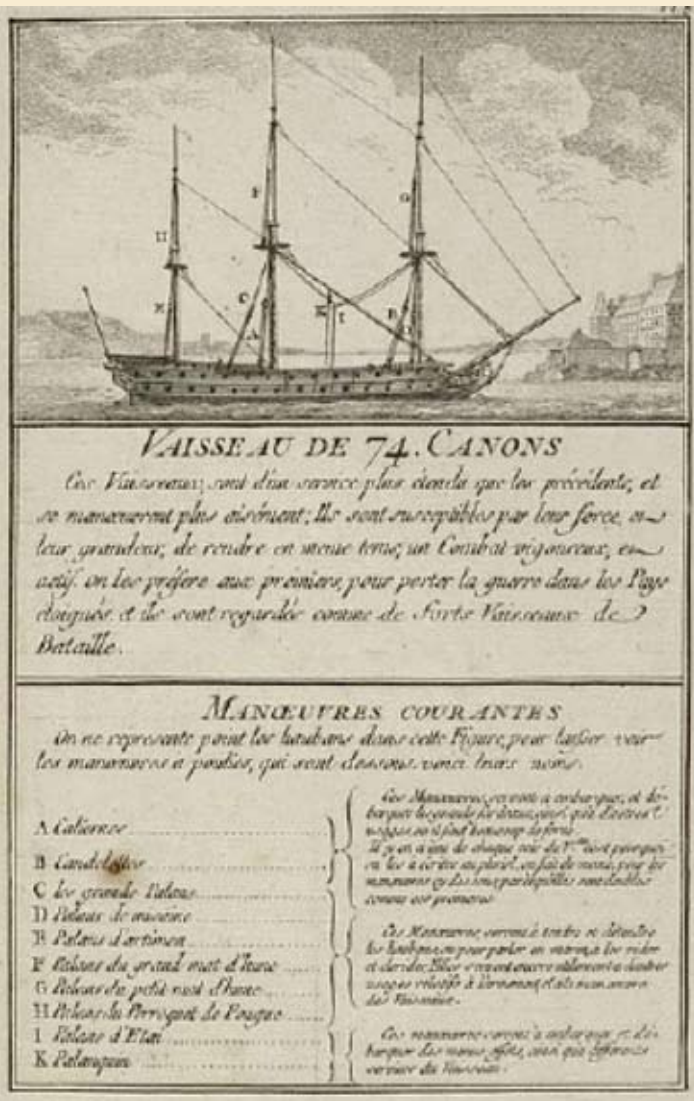 H
F
G
E
C
A
K
I
B
D
VAISSEAU DE 74. CANONS
Ces Vaisseaux; sont d'un service plus étendu que les précédents, et
se manœuvrent plus aisément; Ils sont susceptibles par leur force, et
leur grandeur, de rendre en meme tems, un Combat vigoureux, et
actif. on les préfere aux premiers, pour porter la guerre dans les Pays
éloignés, et ils sont regardés comme de forts Vaisseaux de
Bataille.
MANŒUVRES COURANTES
On ne represente point les haubans dans cette Figure, pour laisser voir
les manœuvres a poulies, qui sont dessous. voici leurs noms.
A Caliornes
B Candelettes
C les grands Palans
D Palans de misaine
E Palans d'artimon
F Palans du grand mat d'hune
G Palans du petit mat d'hune
H Palans du Perroquet de Fougue
I Palans d'Etai
K Palanquin
Ces Manœuvres, servent à embarquer, et dé-
barquer les grands fardeaux, ainsi qu'à d'autres
usages, où il faut beaucoup de force.
Il y en a une de chaque coté du c'est pourquoi
on les a écrites au pluriel, on fait de meme, pour les
manœuvres cy dessous, parcequ'elles sont doubles
comme ces premieres
Ces Manœuvres, servent à tendre et détendre
les haubans, ou pour parler en marin, à les rider
et derider. Elles servent encore utilement a d'autres
usages relatifs à l'armement, et à la manœuvre
des Vaisseaux.
Ces manœuvres servent à embarquer et dé-
barquer des menus effets, ainsi qu'à differents
services du Vaisseau.